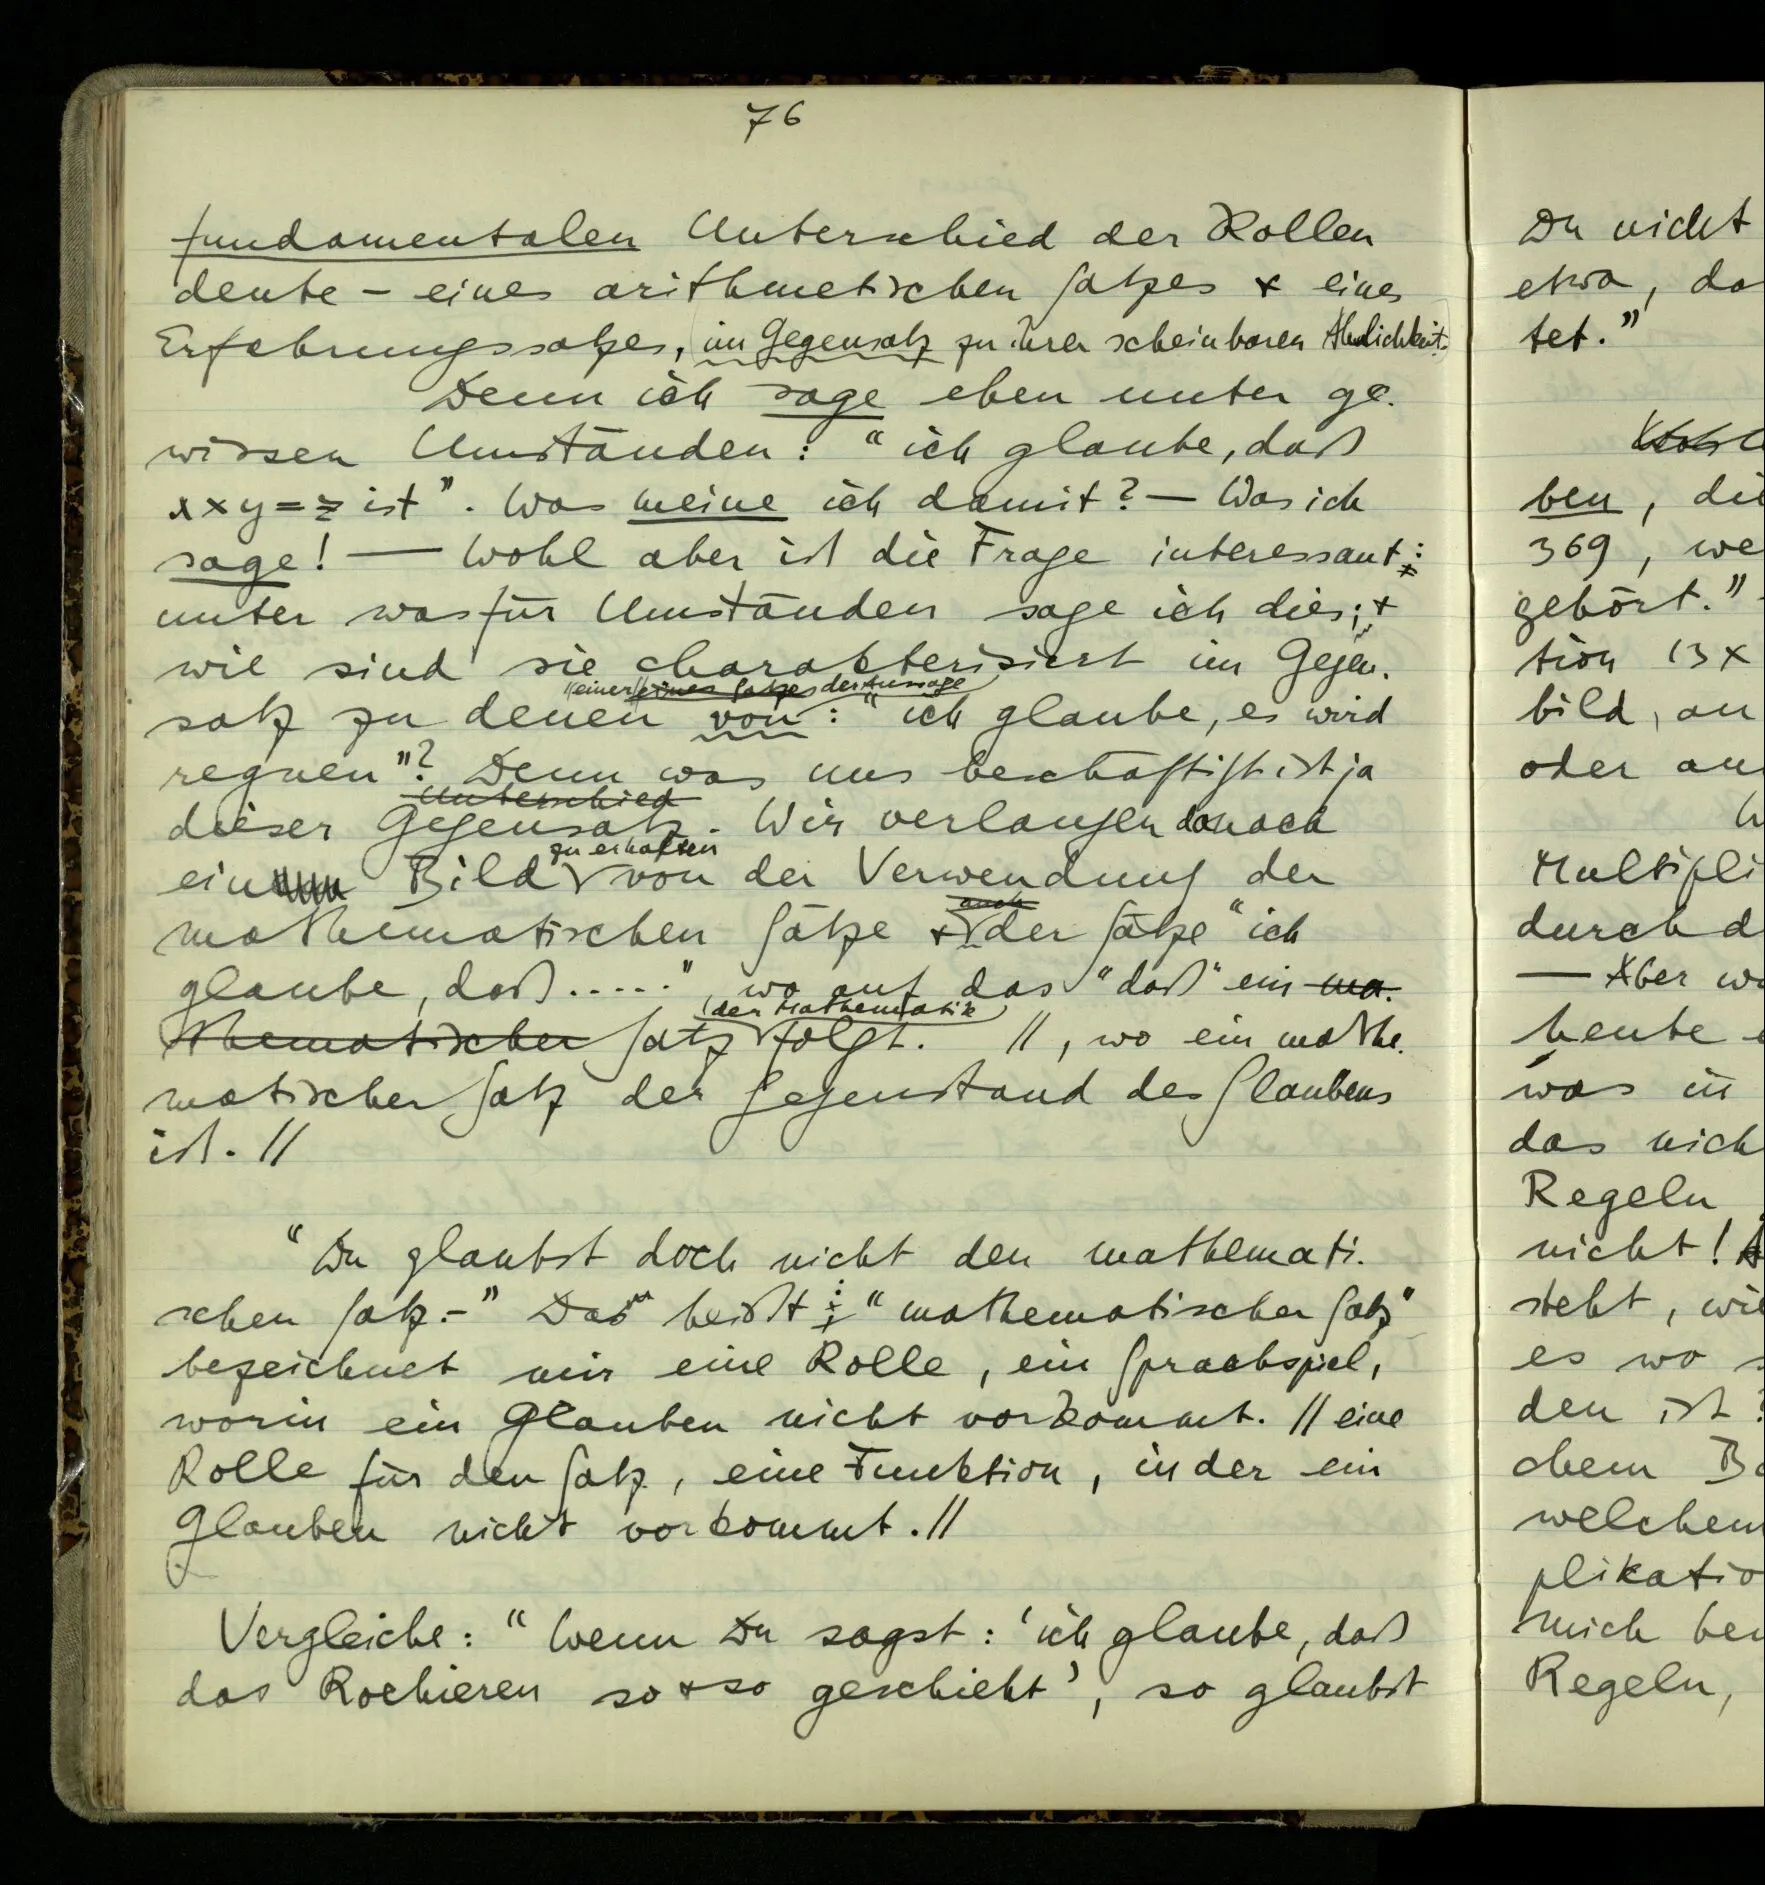 76
fundamentalen Unterschied der Rollen
deute – eines arithmetischen Satzes & eines
Erfahrungssatzes, im Gegensatz zu ihrer scheinbaren Ähnlichkeit.
Denn ich sage eben unter ge-
wissen Umständen: “ich glaube, daß
x×y=z ist”. Was meine ich damit? — Was ich
sage! — Wohl aber ist die Frage interessant:
unter was für Umständen sage ich dies; &
wie sind sie charakterisiert im Gegen-
//einer eines Satzes der Aussage
satz zu denen von: “ich glaube, es wird
regnen”? Denn was uns beschäftigt ist ja
Unterschied
dieser Gegensatz. Wir verlangen danach
zu erhalten
ein Bild von der Verwendung der
auch
mathematischen Sätze & der Sätze “ich
glaube, daß.....”, wo auf das “daß” ein ma-
der Mathematik
thematischer Satz folgt. //, wo ein mathe-
matischer Satz der Gegenstand des Glaubens
ist. //
“Du glaubst doch nicht den mathemati-
schen Satz.–” Das heißt: “mathematischer Satz”
bezeichnet mir eine Rolle, ein Sprachspiel,
worin ein Glauben nicht vorkommt. // eine
Rolle für den Satz, eine Funktion, in der ein
Glauben nicht vorkommt. //
Vergleiche: “Wenn Du sagst: ‘ich glaube, daß
das Rochieren so & so geschieht’, so glaubst
Du nicht
etwa, da
tet.”
ben, die
369, we
gehört.”
tion 13×
bild, an
oder au
W
Multipli
durch d
— Aber wa
heute e
was in
das nich
Regeln
nicht! A
steht, wie
es wo s
den ist?
chem Be
welchem
plikatio
mich be
Regeln,